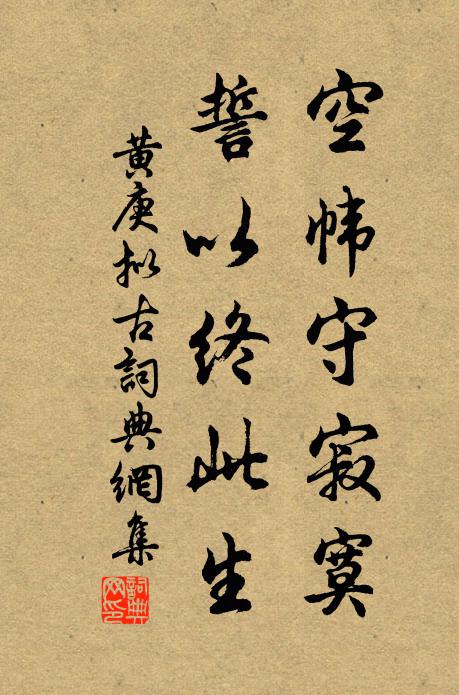 空帏守寂寞
誓以終此生
黃庚拟古詞典網集
詞典网印